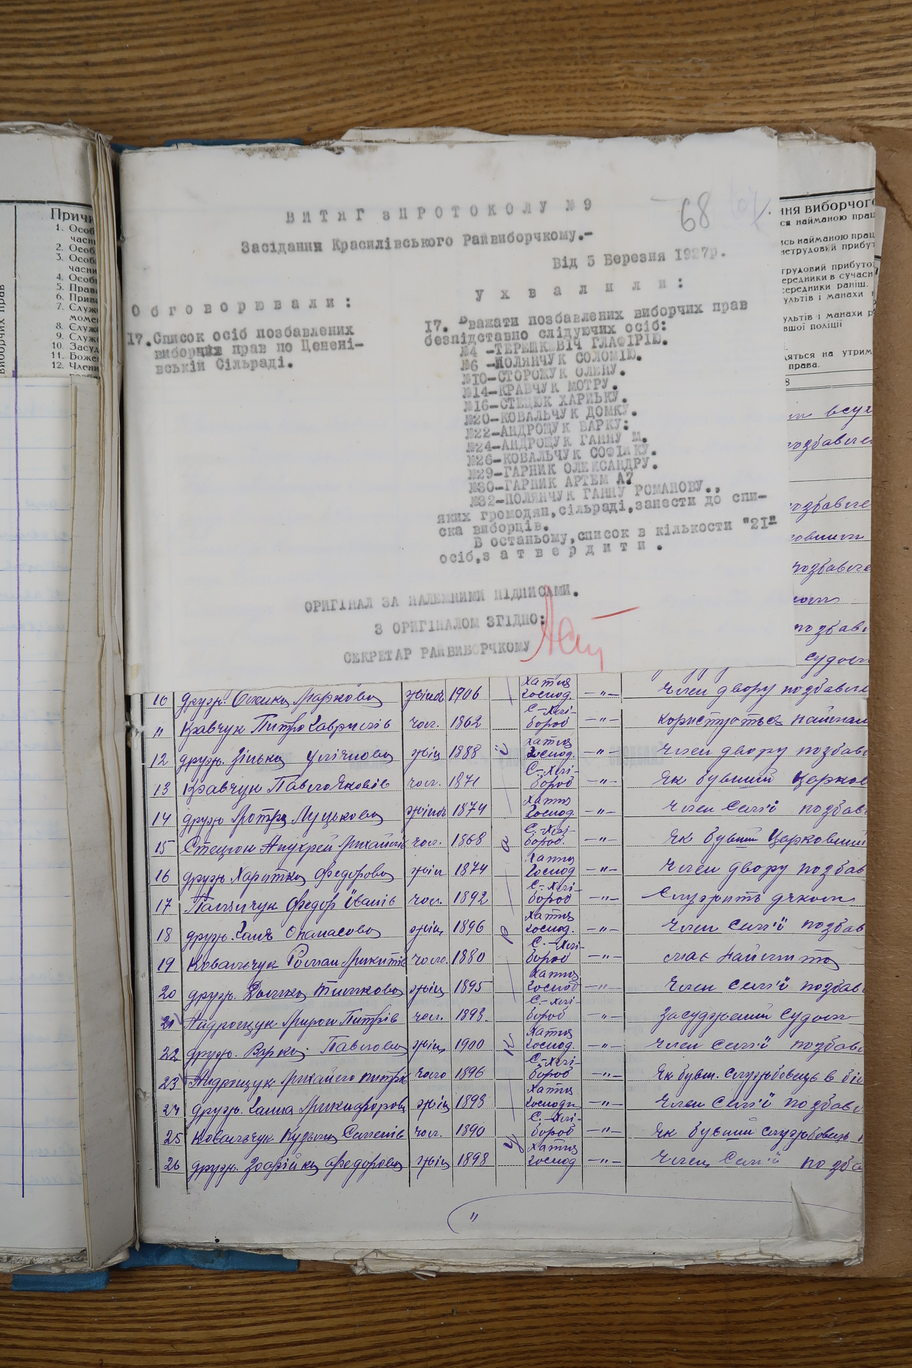 ВИТЯГ З ПРОТОКОЛУ №9
68
Засідання Красилівського Райвиборчкому.-
Від 5 Березня 1927р.
Обговорювали:
Ухвалили:
17. Список осіб позбавлених
виборчих прав по Ценені-
вській Сільраді.
17. Вважати позбавлених виборчих прав
безпідставно слідуючих осіб:
№4 -ТЕРЕШКЕВІЧ ГЛАФІРІЮ.
№6 -ПОЛЯНЧУК СОЛОМІЮ.
№10-СТОРОЖУК ОЛЕНУ.
№14-КРАВЧУК МОТРУ.
№16-СТЕЦЮК ХАРИЬКУ.
№20-КОВАЛЬЧУК ДОМКУ.
№22-АНДРОЩУК ВАРКУ:
№24-АНДРОЩУК ГАННУ М.
№26-КОВАЛЬЧУК СОФІЙКУ.
№29-ГАРНИК ОЛЕКСАНДРУ.
№30-ГАРНИК АРТЕМ А7
№32-ПОЛЯНЧУК ГАННУ РОМАНОВУ.,
яких громодян,сільраді,занести до спи-
ска виборців.
В останьому,список в кількости "21"
осіб,затвердити.
ОРИГІНАЛ ЗА НАЛЕЖНИМИ ПІДПИСАМИ.
З ОРИГІНАЛОМ ЗГІДНО:
СЕКРЕТАР РАЙВИБОРЧКОМУ
Причи
1. Особ
часн
2. Особ
3. Особ
часни
4. Особи
5. Прав
6. Прив
7. Служ
момен
8. Служ
9. Служ
10. Засуд
11. Боже
12. Члени
ння виборчого
ся найманою прац
ись найманою прац
нетрудовий прибут
трудовий прибуток
середники в сучасн
середники раніш.
ультів і манахи
ультів і манахи р
вшої поліції
яться на утрим
права.
8
10 друж. Маркова жіноч 1906 Хатня господ. —"— Член двору позбавле
11 Кравчук Питро Гаврилів чол. 1862 С.-Хлі-бороб —"— Користується найман
12 друж. Зінька жін 1888 хатня господ. —"— Член двору позбав
13 Кравчук Павло Яковів чол. 1871 С.-Хлі-бороб —"— Як бувший Церков
14 друж Мотря Луцькова жіноч 1874 Хатня господ. —"— Член Сем'ї позбав
15 Стецюк Андрей Михайлів чол. 1868 С.-Хлі-бороб. —"— Як бувши Церковний
16 друж Харитка Федорова жін 1874 Хатня господ —"— Член двору позбав
17 Федор Іванів чол. 1892 С.-Хлі-бороб —"— Служить дяком
18 друж. Ганя Опанасова жін. 1896 Хатня господ. —"— Член Сем'ї позбав
19 Ковальчук Роман Микитів чол. 1880 С.-Хлі-бороб —"— має наймита
20 друж. Домка Тимкова жін 1895 Хатня господ —"— Член Сем'ї позбав
21 Андрощук Мирон Питрів чол. 1893. С.-Хлі-бороб —"— Засуджений Судом
22 друж. Варка Павлова жін 1900 Хатня господ. —"— Член Сем'ї позбав
23 Андрощук Михайло Питрів чоло 1896 С.-Хлі-бороб —"— Як бувш. службовець в
24 друж. Ганна Микифорова жін 1893 Хатня господи —"— Член Сем'ї позбав
25 Ковальчук Семенів чол. 1890 С.-Хлі-бороб —"— Як бувший службовець
26 друж Зофійка Федорова жін 1898 Хатня господ —"— Член Сем'ї позба
"